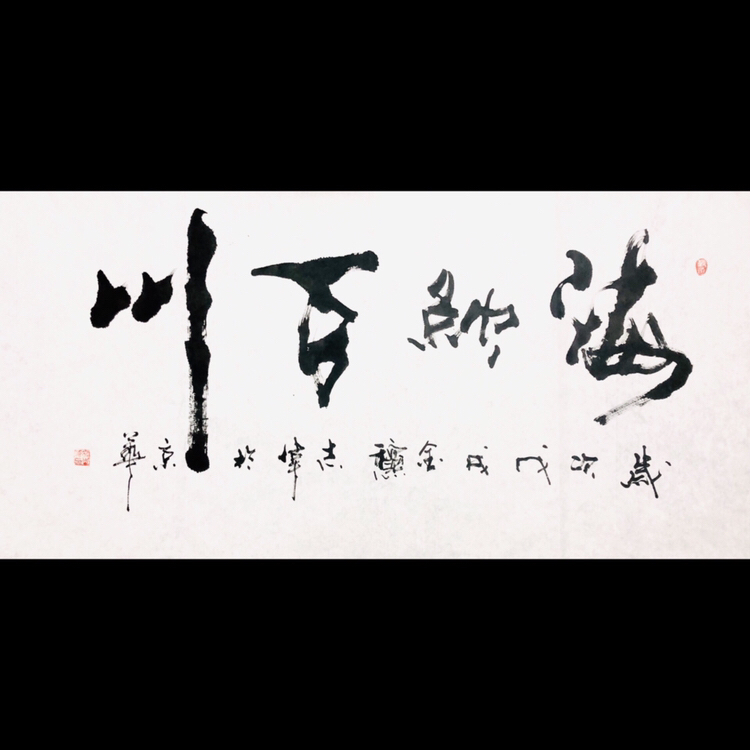 海納百川
歲次戊戌金秋志偉於京華